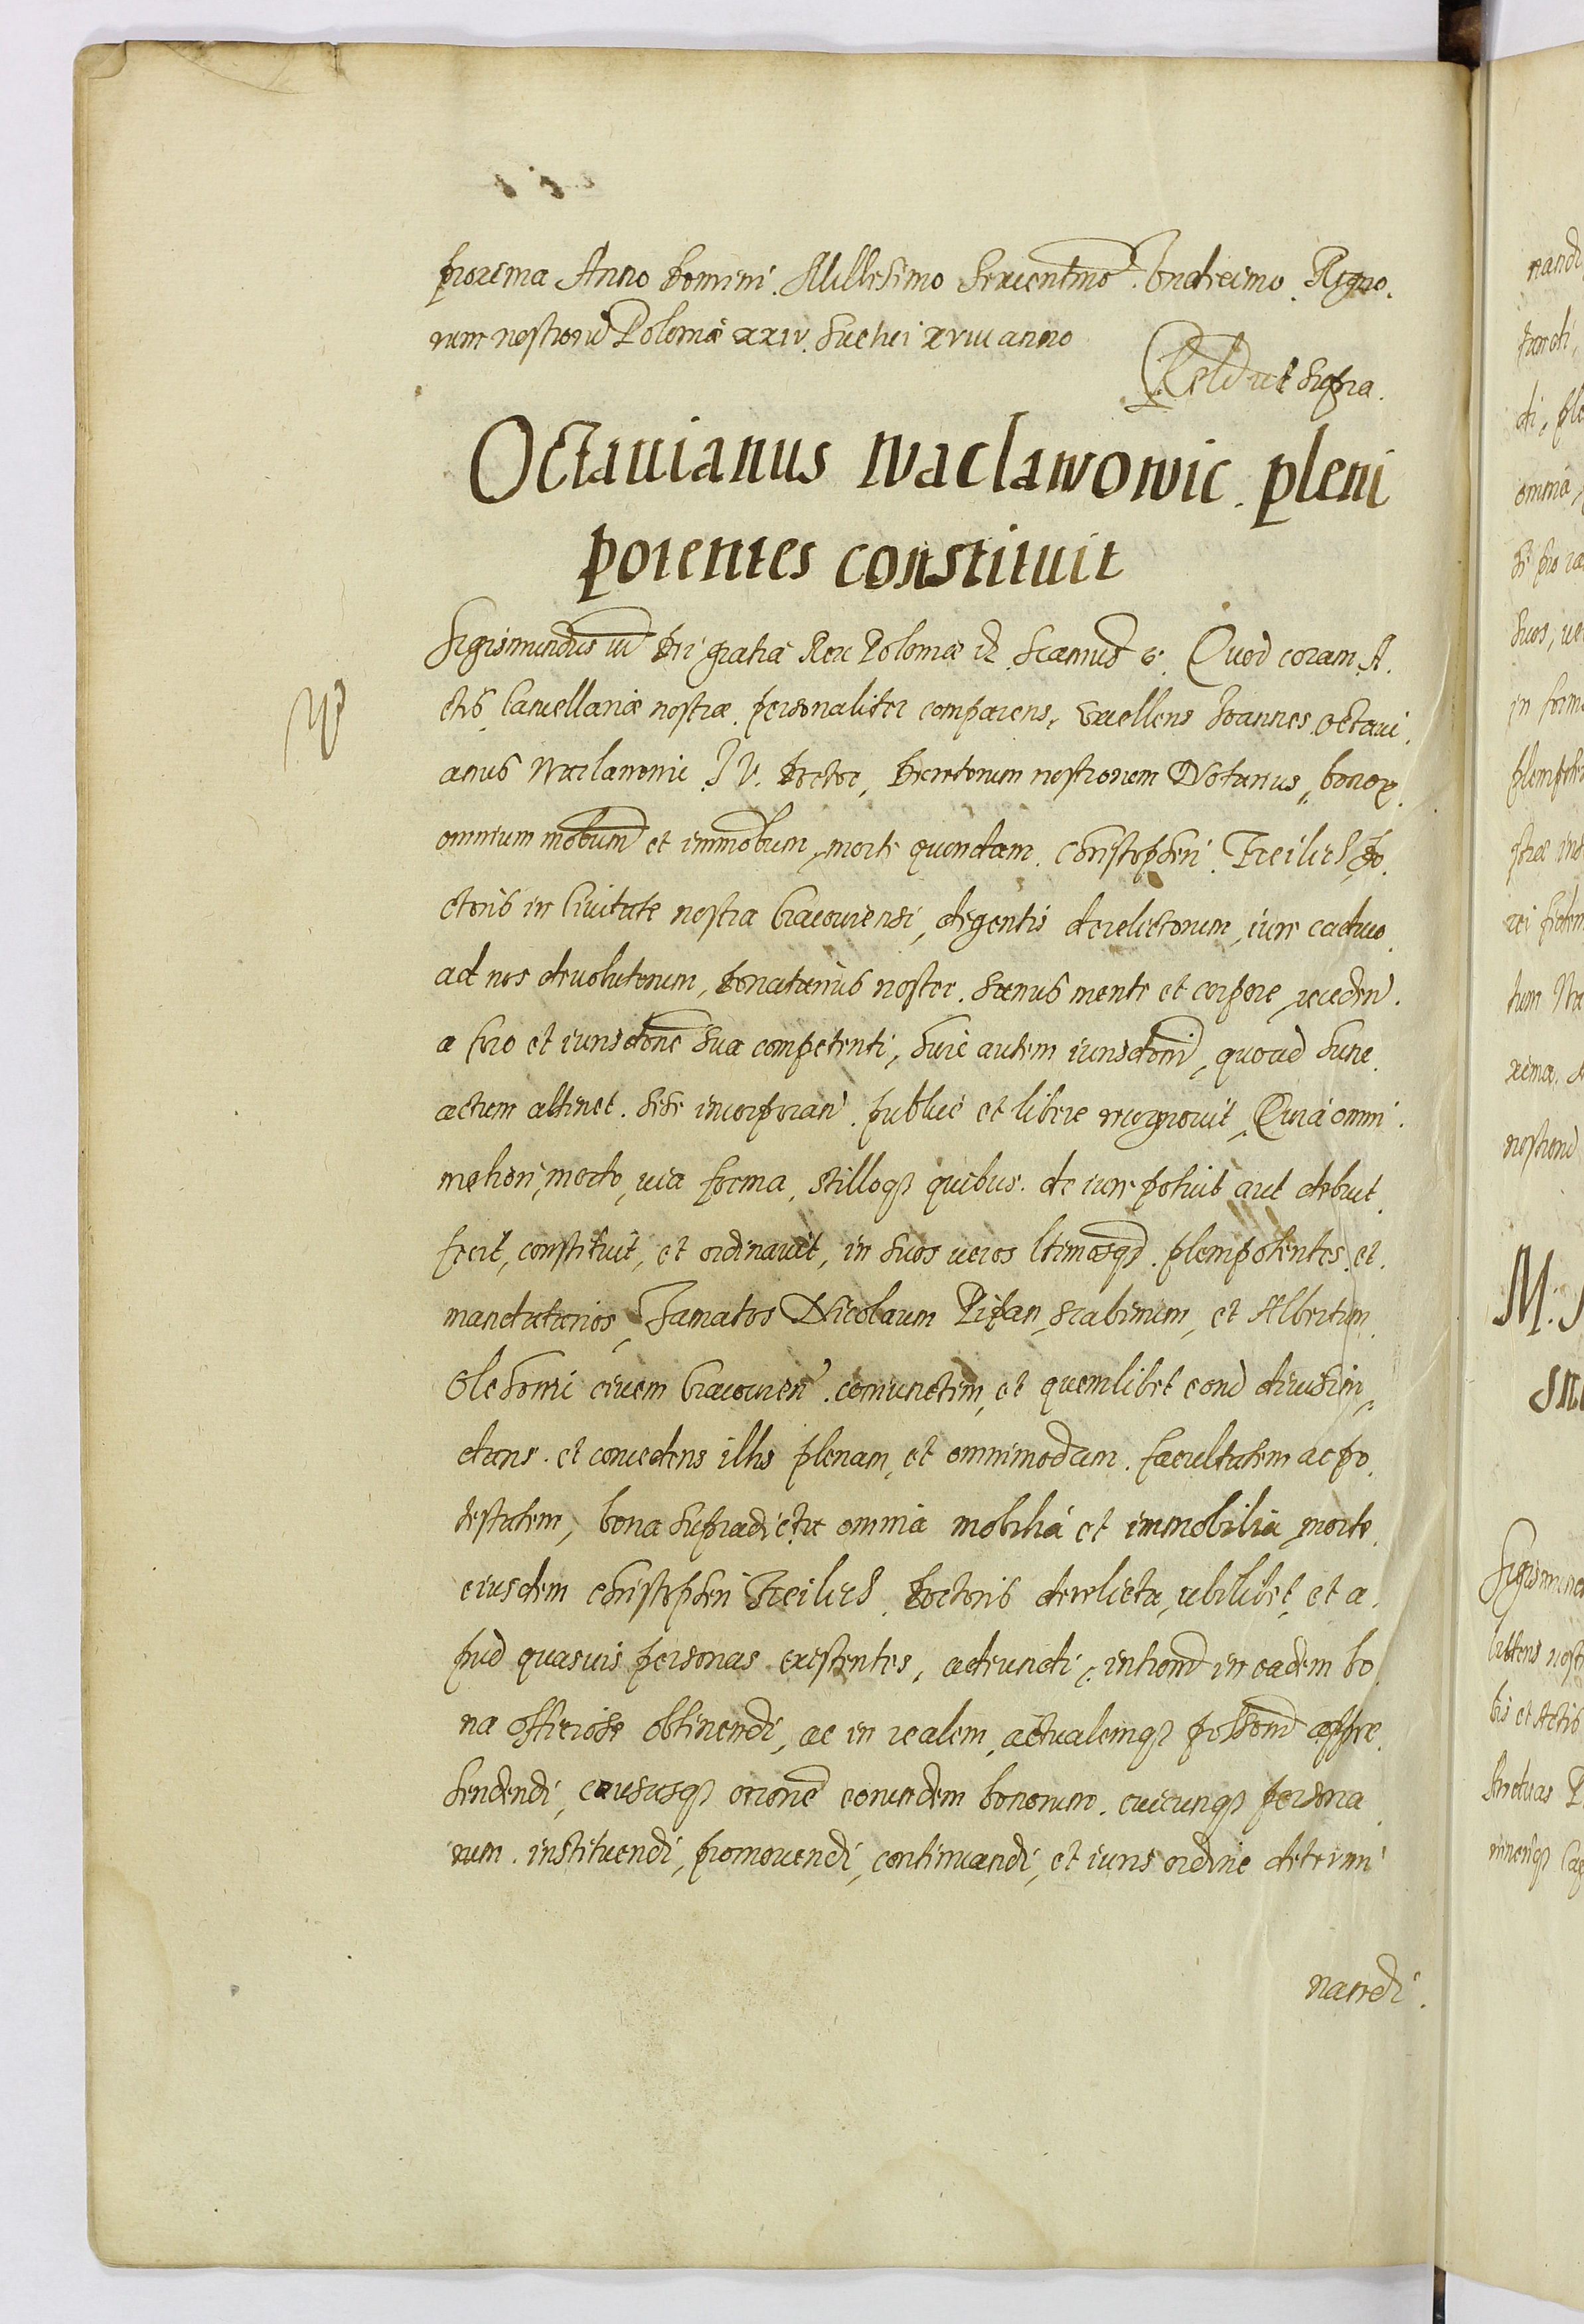 proxima Anno Domini Millesimo Sexcentmo Vndecimo. Regno.
rum nostrorum Poloniæ XXIV. Sueciæ XVIII anno
Relõ ut supra.
Octauianus Waclawowic pleni
potentes constituit
Sigismundus III Dei gratia Rex Poloniæ &c. Significamus &c. Quod coram A.
ctis Cancellariæ nostræ personaliter comparens, Excellens Joannes Octaui.
anus Waclawowic J V. Doctor, Decretorum nostrorum Notarius, bonor.
omnium mobium et immobium, morte quondam Christopheri Freilich Do.
ctoris in Ciuitate nostra Cracouiensi, degentis derelictorum, iure caduco
ad nos deuolutorum, Donatarius noster. Sanus mente et corpore, receden.
a foro et iurisdctone sua competenti, huic autem iurisdctoni, quoad hunc
actum attinet. sese incorporan. publice et libere recognouit, Quia omni.
meliori, modo, uia forma, stilloq, quibus de iure potuit aut debuit
fecit, constituit, et ordinauit, in suos ueros ltimosq, plenipotentes et.
mandatarios, Famatos Nicolaum Pipan, scabinum, et Albertum
Olehowi ciuem Cracouien. coniunctim, et quemlibet eorum diuisim,
dans. et concedens illis plenam, et omnimodam. facultatem ac po.
testatem, bona supradicta omnia mobilia et immobilia morte
eiusdem Christopheri Freilich Doctoris derelicta, ubilibet, et a.
pud quasuis personas existentes, adeundi, introm in eadem bo
na officiose obtinendi, ac in realem, actualemq, possom appre
hendendi, causasq, orone eorundem bonorum. cuicunq, persona
rum instituendi, promouendi, continuandi, et iuris ordine determi
nandi.